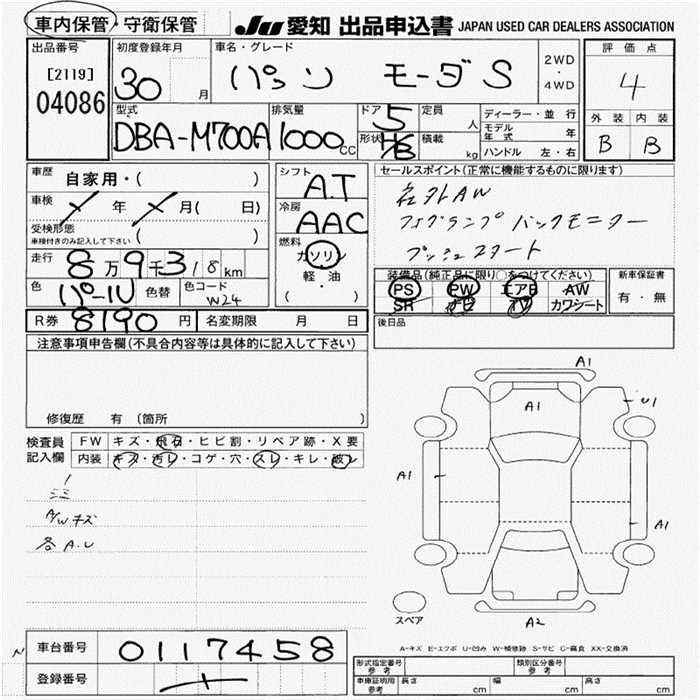 車内保管・守衛保管
JU 愛知 出品申込書 JAPAN USED CAR DEALERS ASSOCIATION
出品番号
[2119]
04086
初度登録年月
30 月
車名・グレード
パッソ モーダS
2WD
・
4WD
評価点
4
外装 内装
B B
型式
DBA-M700A
排気量
1000 cc
ドア
5
形状
H/B
定員
人
積載
kg
ディーラー・並行
モデル年式 年
ハンドル 左・右
車歴
自家用・( )
車検
年 月( 日)
受検形態
車検付きのみ記入して下さい ( )
走行
8万9千318km
色
パール
色替
色コード
W24
R券 8190 円
名変期限 月 日
シフト
A.T
冷房
AAC
燃料
ガソリン
軽・油
( )
セールスポイント(正常に機能するものに限ります)
名外AW
フォグランプ バックモニター
プッシュスタート
装備品(純正品に限り○をつけてください)
PS PW エアB AW
SR ナビ TV カワシート
新車保証書
有・無
後日品
注意事項申告欄(不具合内容等は具体的に記入して下さい)
修復歴 有 (箇所 )
検査員記入欄
FW キズ・飛石・ヒビ割・リペア跡・X要
内装 キズ・汚レ・コゲ・穴・スレ・キレ・破レ
A/Wキズ
各A.U
A1
A1
U1
A1
A1
A2
スペア
A-キズ E-エクボ U-凹み W-補修跡 S-サビ C-腐食 XX-交換済
車台番号 0117458
登録番号
形式指定番号
参考
類別区分番号
参考
車庫証明用
参考
長さ cm
幅 cm
高さ cm